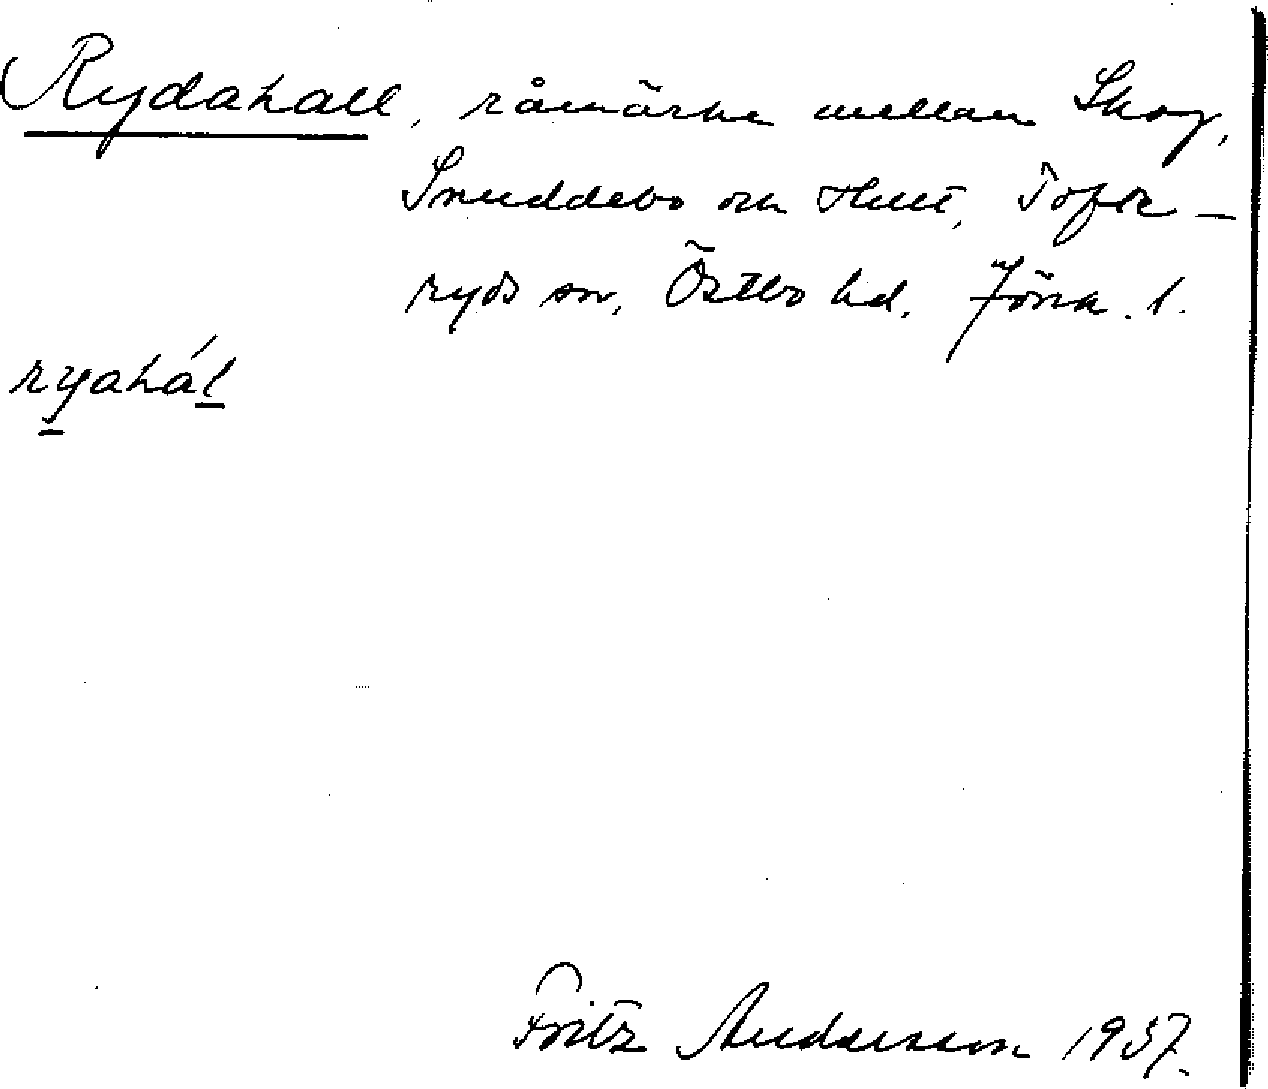 Rydahall, råmärke mellan Skog,
Snuddebo och Hult, Tofte-
ryds sn, Östbo hd. Jönk. l.
ryahál
Fritz Andersson 1937.